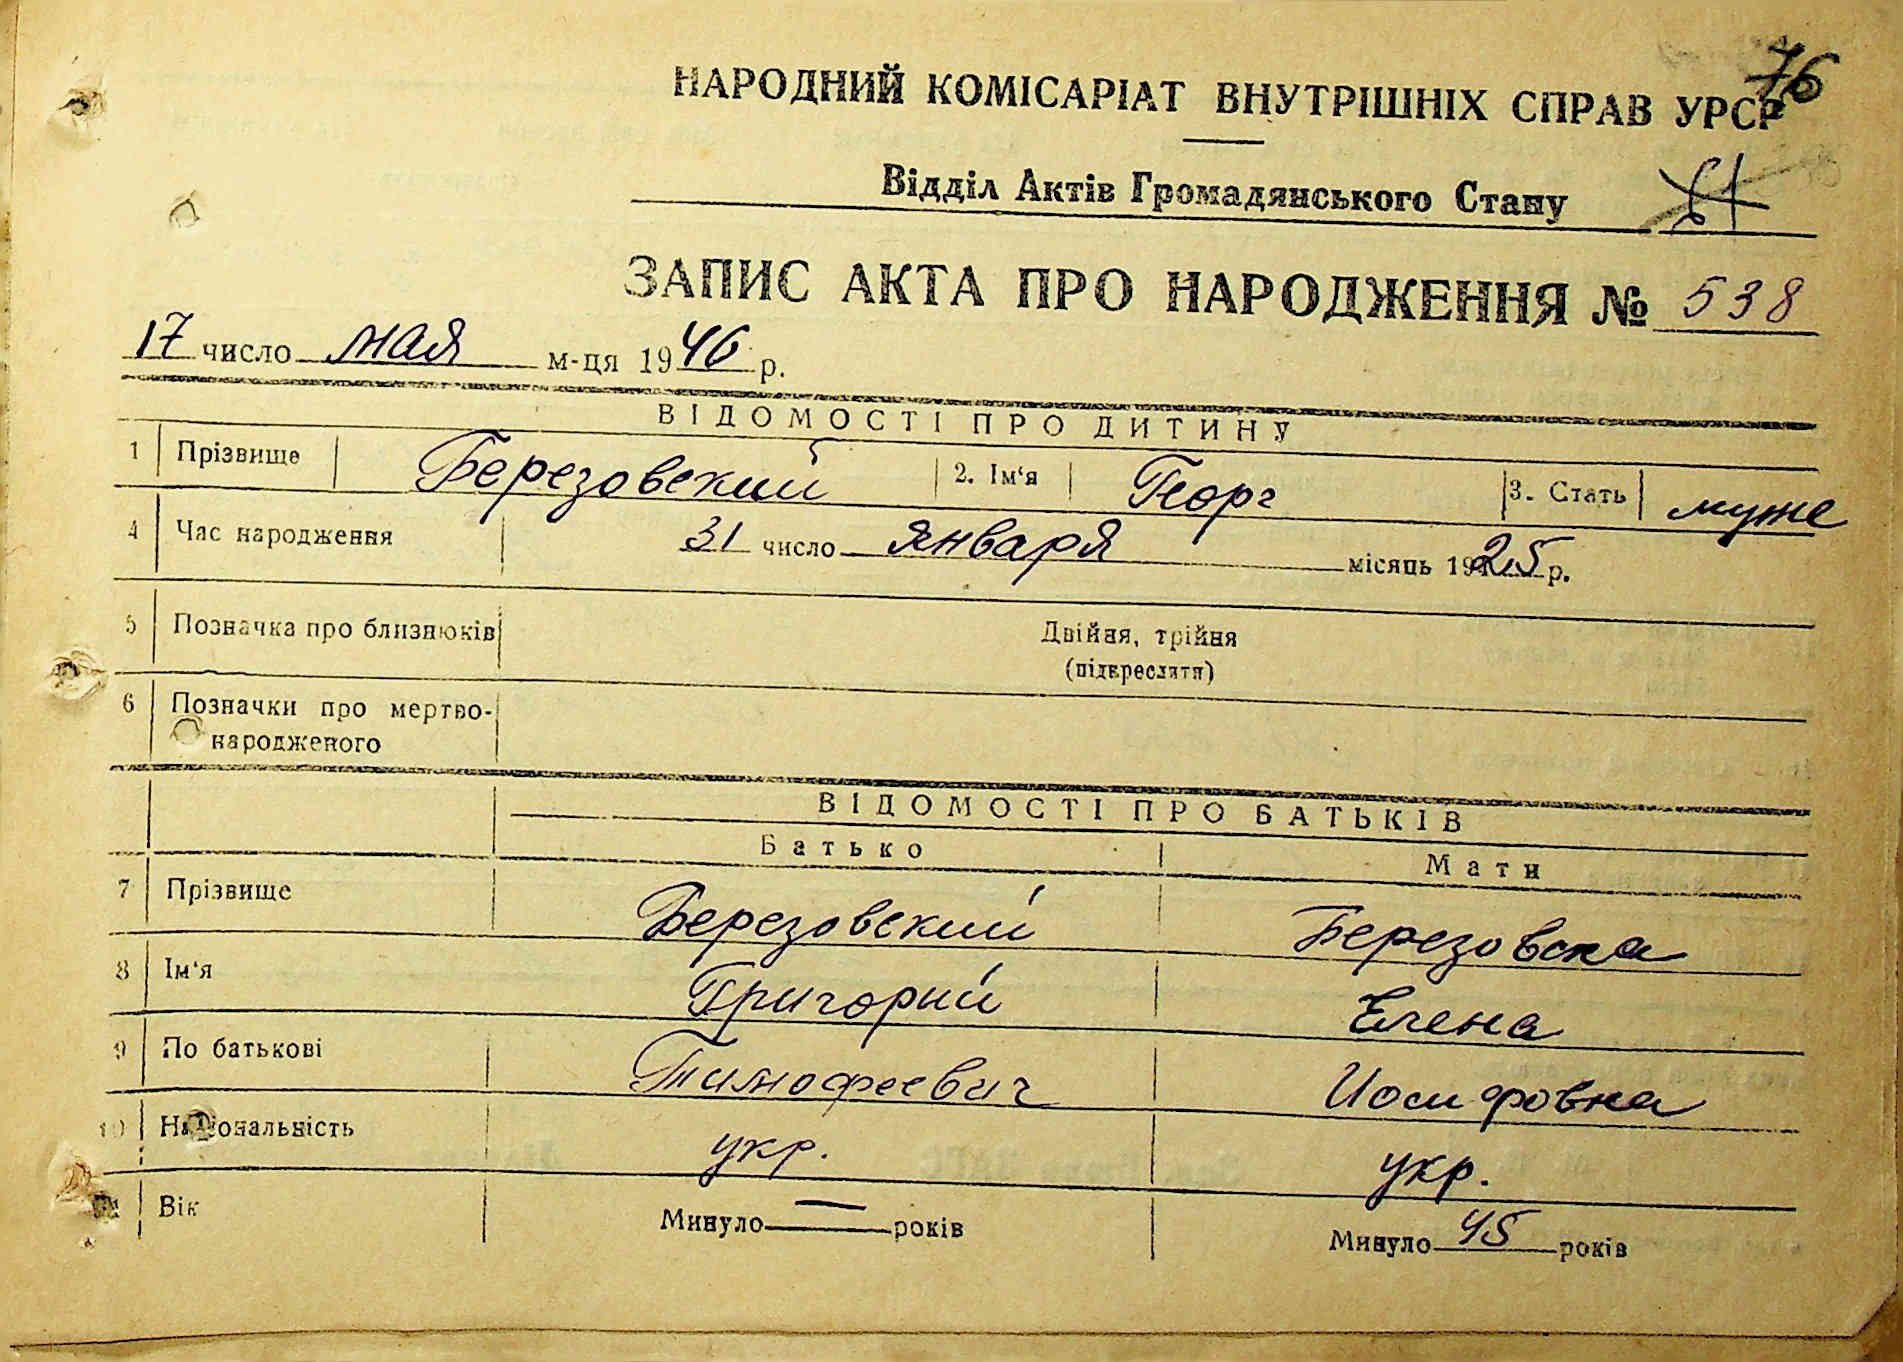 76
НАРОДНИЙ КОМІСАРІАТ ВНУТРІШНІХ СПРАВ УРСР
Відділ Актів Громадянського Стану
ЗАПИС АКТА ПРО НАРОДЖЕННЯ № 538
17 число мая м-ця 1946 р.
ВІДОМОСТІ ПРО ДИТИНУ
1 Прізвище Березовский 2. Ім'я Георг 3. Стать муже
4 Час народження 31 число января місяць 1925 р.
5 Позначка про близнюків Двійня, трійня
(підкреслити)
6 Позначки про мертво-
народженого
ВІДОМОСТІ ПРО БАТЬКІВ
Батько Мати
7 Прізвище Березовский Березовска
8 Ім'я Григорий Елена
9 По батькові Тимофеевич Иосифовна
10 Національність укр. укр.
11 Вік Минуло — років Минуло 45 років